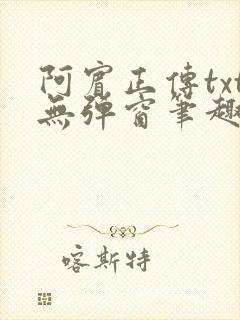 阿賓正傳txt
無彈窗筆趣
喀斯特